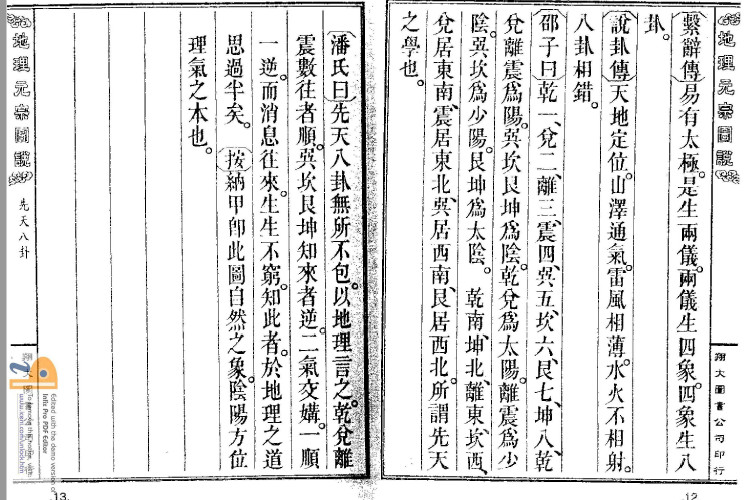 地理元宗圖說
翔大圖書公司印行
繫辭傳易有太極。是生兩儀。兩儀生四象。四象生八
卦。
說卦傳天地定位。山澤通氣。雷風相薄。水火不相射。
八卦相錯。
邵子曰乾一、兌二、離三、震四、巽五、坎六、艮七、坤八、乾
兌離震爲陽。巽坎艮坤爲陰。乾兌爲太陽。離震爲少
陰。巽坎爲少陽。艮坤爲太陰。 乾南、坤北、離東、坎西、
兌居東南、震居東北、巽居西南、艮居西北。所謂先天
之學也。
12
潘氏曰先天八卦無所不包。以地理言之。乾兌離
震數往者順。巽坎艮坤知來者逆。二氣交媾。一順
一逆。而消息往來。生生不窮。知此者。於地理之道
思過半矣。 按納甲卽此圖自然之象。陰陽方位
理氣之本也。
地理元宗圖說
先天八卦
13.
Edited with the demo version of
Infix Pro PDF Editor
To remove this notice, visit:
www.iceni.com/unlock.htm